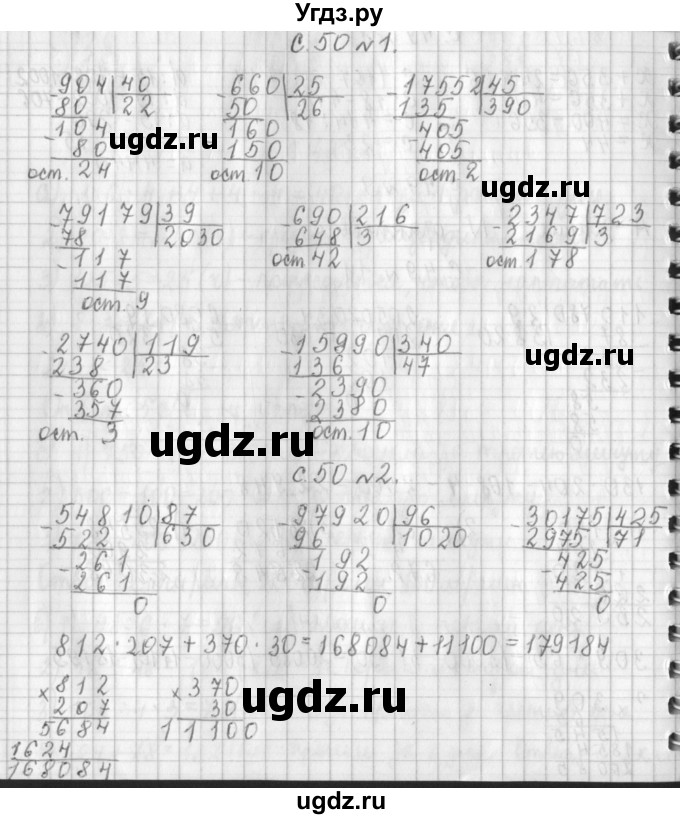 Угдз.ру
с. 50 №1.
904 40 660 25 17552 45
80 22 50 26 135 390
104 160 405
80 150 405
ост. 24 ост. 10 ост. 2
ugdz.ru ugdz.ru ugdz.ru
79179 39 690 216 2347 723
78 2030 648 3 2169 3
117 ост. 42 ост. 178
117
ост. 9
ugdz.ru ugdz.ru
2740 119 15990 340
238 23 136 47
360 2390
357 2380
ост. 3 ост. 10
ugdz.ru ugdz.ru
с. 50 №2.
54810 87 97920 96 30175 425
522 630 96 1020 2975 71
261 192 425
261 192 425
0 0 0
812 · 207 + 370 · 30 = 168084 + 11100 = 179184
× 812 × 370
207 30
5684 11100
1624
168084
ugdz.ru ugdz.ru
ugdz.ru